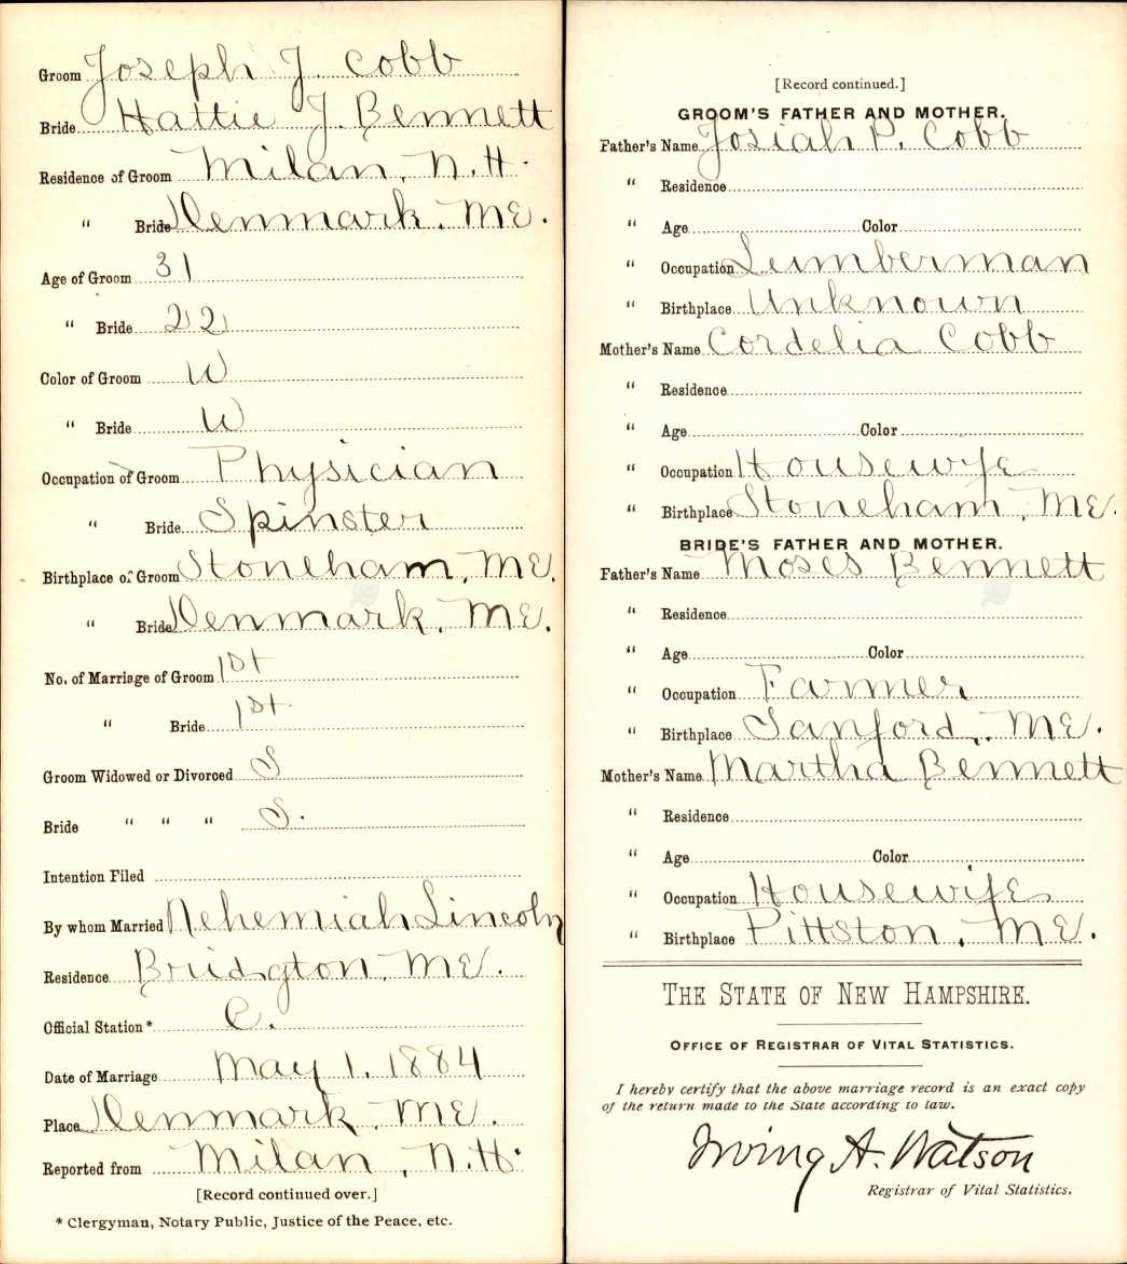 Groom Joseph J. Cobb
Bride Hattie J. Bennett
Residence of Groom Milan, N.H.
" Bride Denmark, ME.
Age of Groom 31
" Bride 22
Color of Groom W
" Bride W
Occupation of Groom Physician
" Bride Spinster
Birthplace of Groom Stoneham, ME.
" Bride Denmark, ME.
No. of Marriage of Groom 1st
" Bride 1st
Groom Widowed or Divorced S
Bride " " " S.
Intention Filed
By whom Married Nehemiah Lincoln
Residence Bridgton, ME.
Official Station* C.
Date of Marriage May 1, 1884
Place Denmark, ME.
Reported from Milan, N.H.
[Record continued over.]
* Clergyman, Notary Public, Justice of the Peace, etc.
[Record continued.]
GROOM'S FATHER AND MOTHER.
Father's Name Josiah P. Cobb
" Residence
" Age Color
" Occupation Lumberman
" Birthplace Unknown
Mother's Name Cordelia Cobb
" Residence
" Age Color
" Occupation Housewife
" Birthplace Stoneham, ME.
BRIDE'S FATHER AND MOTHER.
Father's Name Moses Bennett
" Residence
" Age Color
" Occupation Farmer
" Birthplace Sanford, ME.
Mother's Name Martha Bennett
" Residence
" Age Color
" Occupation Housewife
" Birthplace Pittston, ME.
THE STATE OF NEW HAMPSHIRE.
OFFICE OF REGISTRAR OF VITAL STATISTICS.
I hereby certify that the above marriage record is an exact copy
of the return made to the State according to law.
Irving A. Watson
Registrar of Vital Statistics.